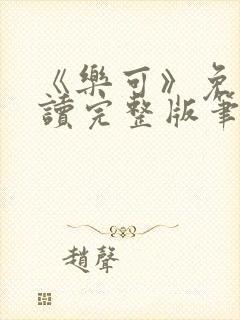 《樂可》免
讀完整版筆
趙聲